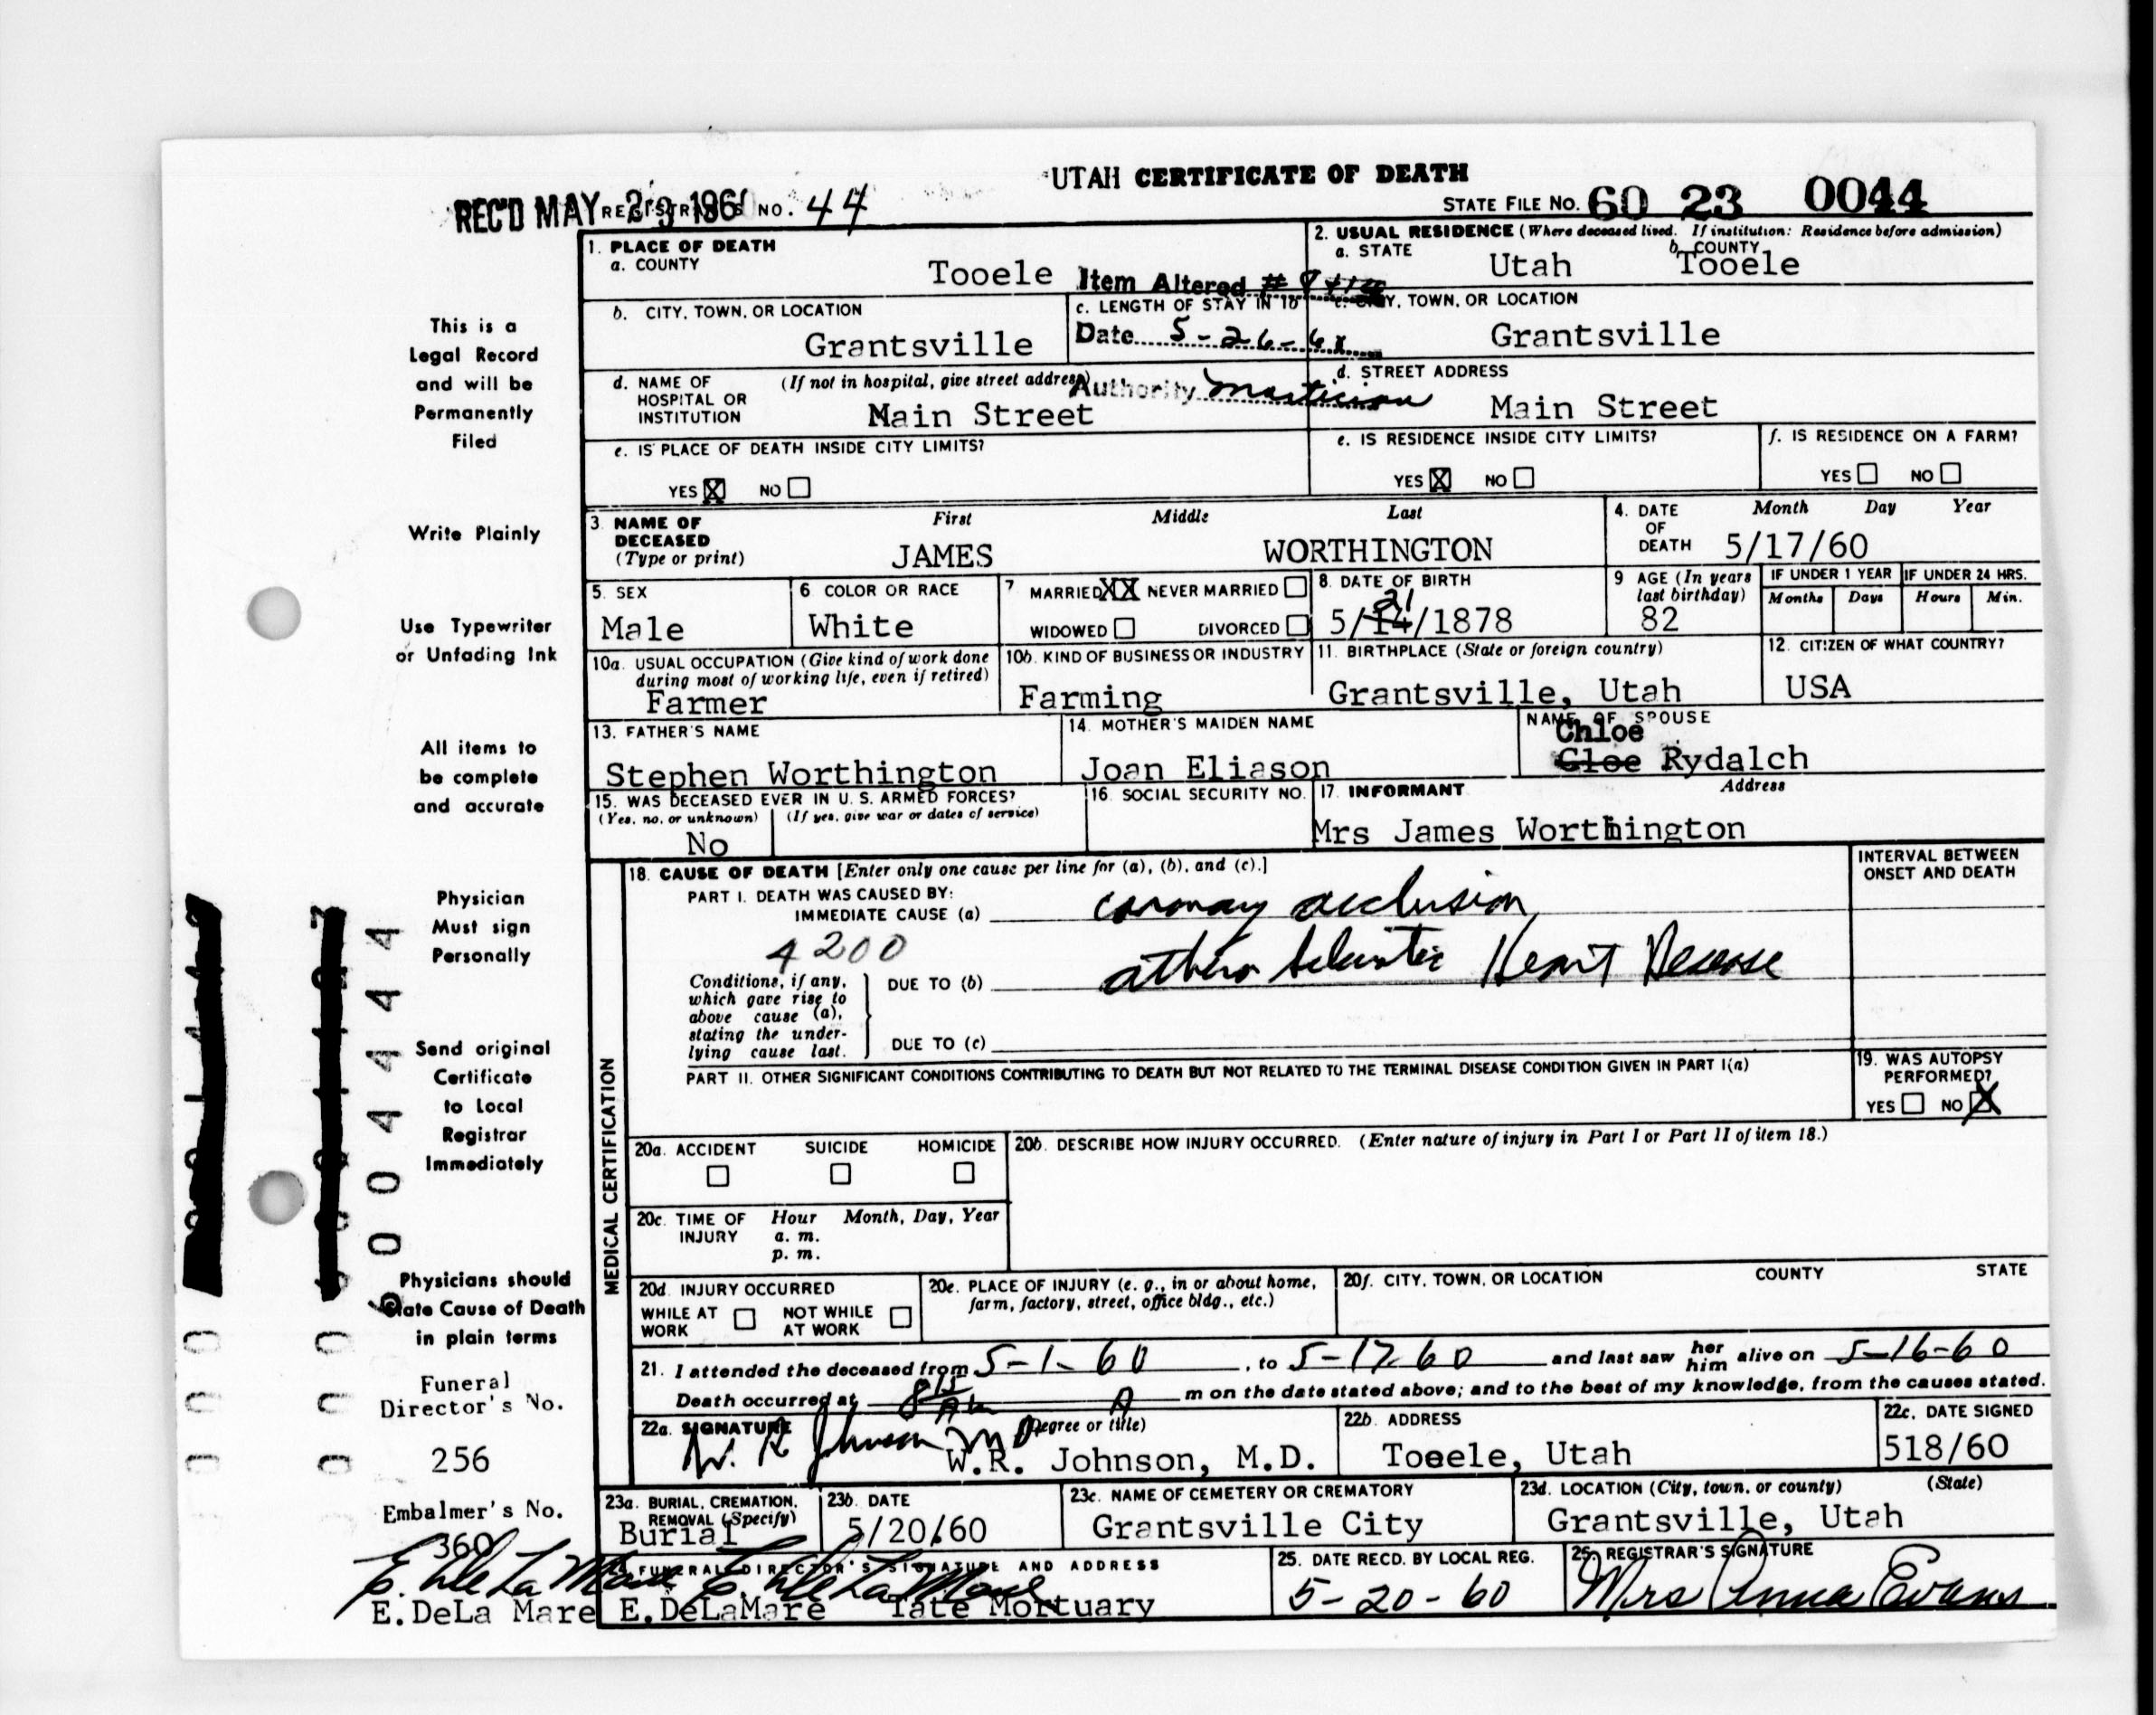 UTAH CERTIFICATE OF DEATH
REC'D MAY 23 1960 REGISTRAR'S NO. 44
STATE FILE NO. 60 23 0044
1. PLACE OF DEATH
a. COUNTY
Tooele
Item Altered #
2. USUAL RESIDENCE (Where deceased lived. If institution: Residence before admission)
a. STATE
Utah
b. COUNTY
Tooele
b. CITY, TOWN, OR LOCATION
Grantsville
c. LENGTH OF STAY IN 1b
Date 5-26-
c. CITY, TOWN, OR LOCATION
Grantsville
d. NAME OF HOSPITAL OR INSTITUTION
(If not in hospital, give street address)
Main Street
Authority
d. STREET ADDRESS
Main Street
e. IS PLACE OF DEATH INSIDE CITY LIMITS?
YES X NO
e. IS RESIDENCE INSIDE CITY LIMITS?
YES X NO
f. IS RESIDENCE ON A FARM?
YES NO
3. NAME OF DECEASED (Type or print)
First Middle Last
JAMES WORTHINGTON
4. DATE OF DEATH
Month Day Year
5/17/60
5. SEX
Male
6. COLOR OR RACE
White
7. MARRIED XX NEVER MARRIED
WIDOWED DIVORCED
8. DATE OF BIRTH
21
5/14/1878
9. AGE (In years last birthday)
82
IF UNDER 1 YEAR
Months Days
IF UNDER 24 HRS.
Hours Min.
10a. USUAL OCCUPATION (Give kind of work done during most of working life, even if retired)
Farmer
10b. KIND OF BUSINESS OR INDUSTRY
Farming
11. BIRTHPLACE (State or foreign country)
Grantsville, Utah
12. CITIZEN OF WHAT COUNTRY?
USA
13. FATHER'S NAME
Stephen Worthington
14. MOTHER'S MAIDEN NAME
Joan Eliason
NAME OF SPOUSE
Chloe
Cloe Rydalch
15. WAS DECEASED EVER IN U. S. ARMED FORCES?
(Yes, no, or unknown) (If yes, give war or dates of service)
No
16. SOCIAL SECURITY NO.
17. INFORMANT Address
Mrs James Worthington
MEDICAL CERTIFICATION
18. CAUSE OF DEATH [Enter only one cause per line for (a), (b), and (c).]
INTERVAL BETWEEN ONSET AND DEATH
PART I. DEATH WAS CAUSED BY:
IMMEDIATE CAUSE (a) coronary occlusion
4200
Conditions, if any, which gave rise to above cause (a), stating the underlying cause last.
DUE TO (b) Heart Disease
DUE TO (c)
PART II. OTHER SIGNIFICANT CONDITIONS CONTRIBUTING TO DEATH BUT NOT RELATED TO THE TERMINAL DISEASE CONDITION GIVEN IN PART I(a)
19. WAS AUTOPSY PERFORMED?
YES NO X
20a. ACCIDENT SUICIDE HOMICIDE
20b. DESCRIBE HOW INJURY OCCURRED. (Enter nature of injury in Part I or Part II of item 18.)
20c. TIME OF INJURY
Hour Month, Day, Year
a. m.
p. m.
20d. INJURY OCCURRED
WHILE AT WORK NOT WHILE AT WORK
20e. PLACE OF INJURY (e. g., in or about home, farm, factory, street, office bldg., etc.)
20f. CITY, TOWN, OR LOCATION COUNTY STATE
21. I attended the deceased from 5-1-60, to 5-17 60 and last saw her him alive on 5-16-60
Death occurred at 815 AM A m on the date stated above; and to the best of my knowledge, from the causes stated.
22a. SIGNATURE (Degree or title)
W. R Johnson MD
W.R. Johnson, M.D.
22b. ADDRESS
Toeele, Utah
22c. DATE SIGNED
518/60
23a. BURIAL, CREMATION, REMOVAL (Specify)
Burial
23b. DATE
5/20/60
23c. NAME OF CEMETERY OR CREMATORY
Grantsville City
23d. LOCATION (City, town, or county) (State)
Grantsville, Utah
FUNERAL DIRECTOR'S SIGNATURE AND ADDRESS
E. DeLaMare
E.DeLaMare Tate Mortuary
25. DATE RECD. BY LOCAL REG.
5-20-60
26. REGISTRAR'S SIGNATURE
Mrs Anna Evans
This is a
Legal Record
and will be
Permanently
Filed
Write Plainly
Use Typewriter
or Unfading Ink
All items to
be complete
and accurate
Physician
Must sign
Personally
Send original
Certificate
to Local
Registrar
Immediately
Physicians should
State Cause of Death
in plain terms
Funeral
Director's No.
256
Embalmer's No.
360
E. DeLaMare
E.DeLa Mare
60044444